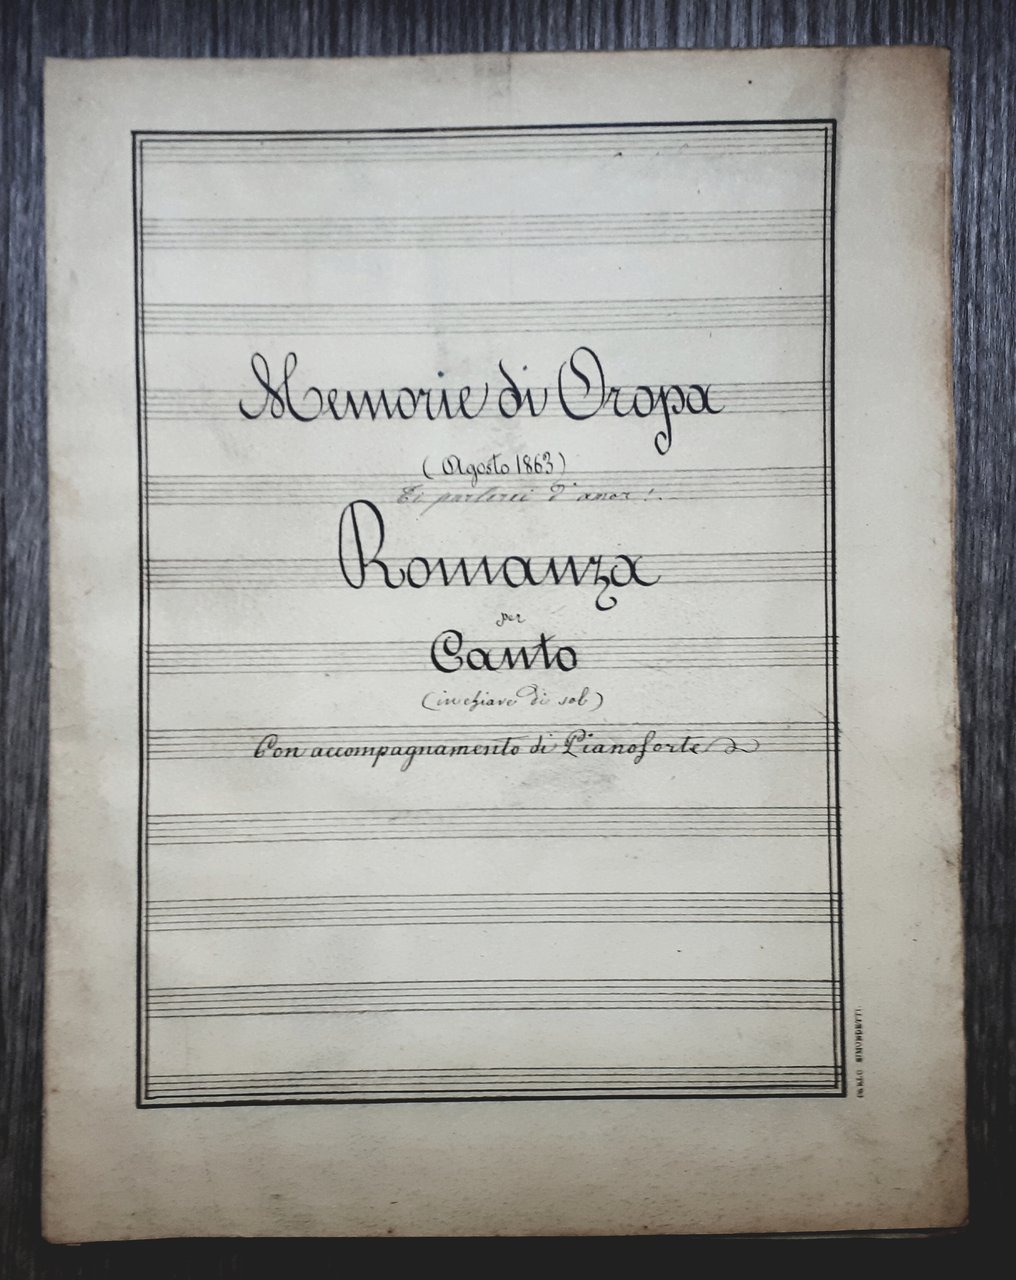 Memorie di Oropa
(Agosto 1863)
Ti parlerei d'amor!
Romanza
per
Canto
(in chiave di sol)
Con accompagnamento di Pianoforte
CARLO SIMONDETTI